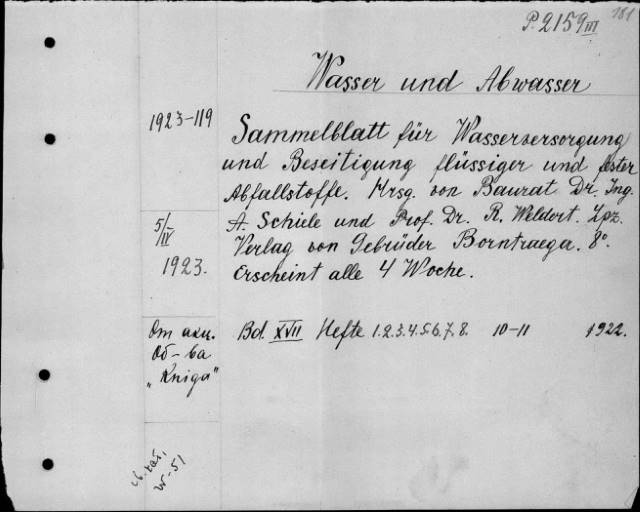 181
P.2159 III
Wasser und Abwasser
1923-119
Sammelblatt für Wasserversorgung
und Beseitigung flüssiger und fester
Abfallstoffe. Hrsg. von Baurat Dr. Ing.
A. Schiele und Prof. Dr. R. Weldort. Lpz.
Verlag von Gebrüder Borntraega. 8°.
Erscheint alle 4 Woche.
5/IV
1923.
От акц.
Об-ва
„Kniga"
Bd. XVII Hefte 1.2.3.4.5.6.7.8. 10-11 1922.
№-51